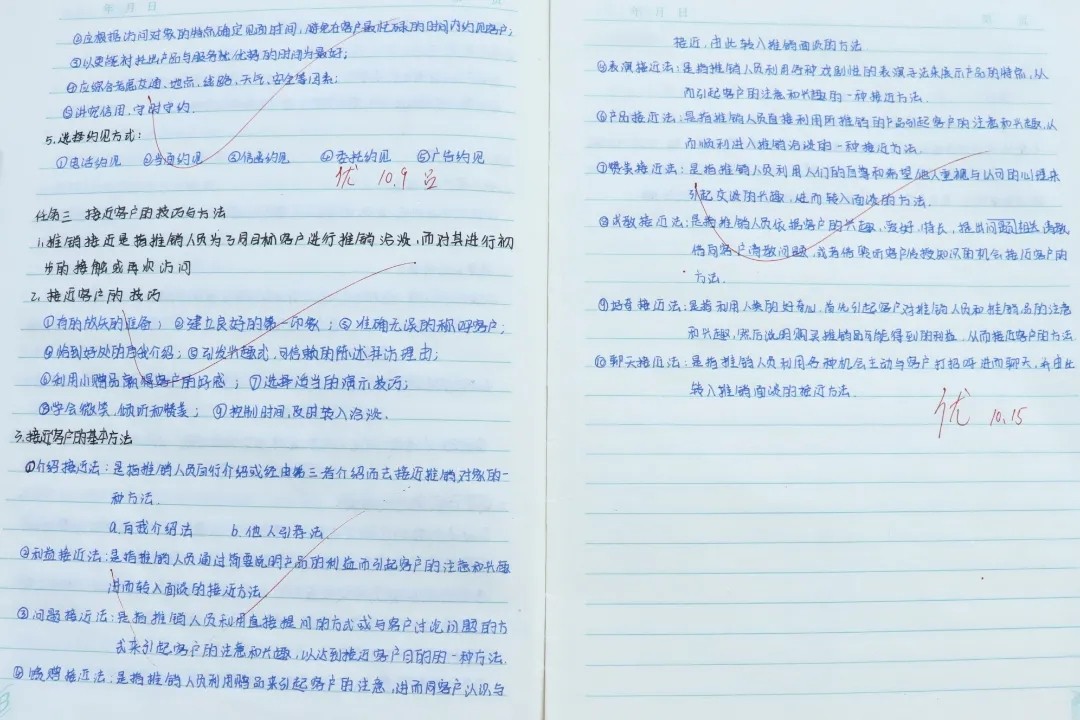 年 月 日
②应根据访问对象的特点确定见面时间，避免在客户最忙碌的时间内约见客户；
③以更能衬托出产品与服务优势的时间为最好；
④应综合考虑交通、地点、线路、天气、安全等因素；
⑤讲究信用，守时守约.
5.选择约见方式：
①电话约见 ②当面约见 ③信函约见 ④委托约见 ⑤广告约见
优 10.9
任务三 接近客户的技巧与方法
1.推销接近是指推销人员为了与目标客户进行推销洽谈，而对其进行初
步的接触或再次访问
2.接近客户的技巧
①有的放矢的准备； ②建立良好的第一印象；③准确无误的称呼客户；
④恰到好处的自我介绍；⑤引发兴趣式，可信赖的陈述拜访理由；
⑥利用小赠品赢得客户的好感；⑦选择适当的演示技巧；
⑧学会微笑、倾听和赞美； ⑨控制时间，及时转入洽谈.
3.接近客户的基本方法
①介绍接近法：是指推销人员自行介绍或经由第三者介绍而去接近推销对象的一
种方法.
a.自我介绍法 b.他人引荐法
②利益接近法：是指推销人员通过简要说明产品的利益而引起客户的注意和兴趣
进而转入面谈的接近方法.
③问题接近法：是指推销人员利用直接提问的方式或与客户讨论问题的方
式来引起客户的注意和兴趣，以达到接近客户目的的一种方法.
④馈赠接近法：是指推销人员利用赠品来引起客户的注意，进而同客户认识与
年 月 日
接近，由此转入推销面谈的方法
⑤表演接近法：是指推销人员利用各种戏剧性的表演手法来展示产品的特点，从
而引起客户的注意和兴趣的一种接近方法.
⑥产品接近法：是指推销人员直接利用所推销的产品引起客户的注意和兴趣，从
而顺利进入推销洽谈的一种接近方法.
⑦赞美接近法：是指推销人员利用人们的自尊和希望他人重视与认可的心理来
引起交谈的兴趣，进而转入面谈的方法.
⑧求教接近法：是指推销人员依据客户的兴趣、爱好、特长，提出问题
借向客户请教问题，或者借聆听客户传授知识的机会接近客户的
方法.
⑨好奇接近法：是指利用人类的好奇心，首先引起客户对推销人员和推销品的注意
和兴趣，然后说明购买推销品可能得到的利益，从而接近客户的方法
⑩聊天接近法：是指推销人员利用各种机会主动与客户打招呼进而聊天，并由此
转入推销面谈的接近方法.
优 10.15